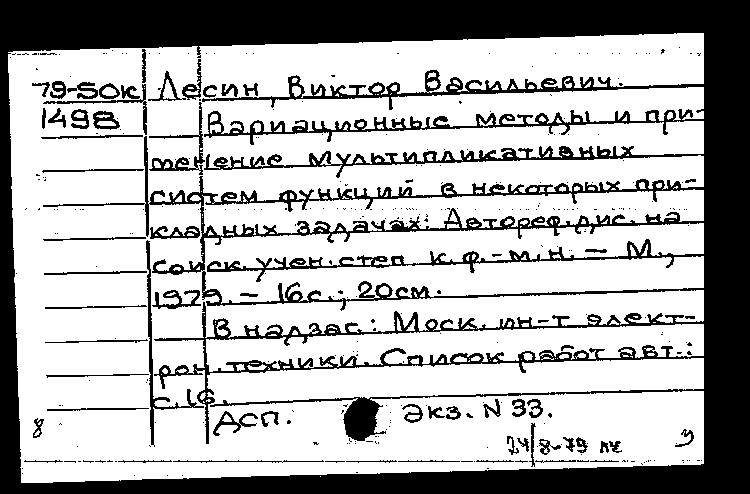 79-50к Лесин, Виктор Васильевич.
1498 Вариационные методы и при-
менение мультипликативных
систем функций в некоторых при-
кладных задачах: Автореф. дис. на
соиск. учен. степ к. ф.-м. н. — М.,
1979. — 16 с.; 20 см.
В надзаг.: Моск. ин-т элект-
рон. техники. Список работ авт.:
с. 16.
8 АСП. Экз. N 33.
24/8-79